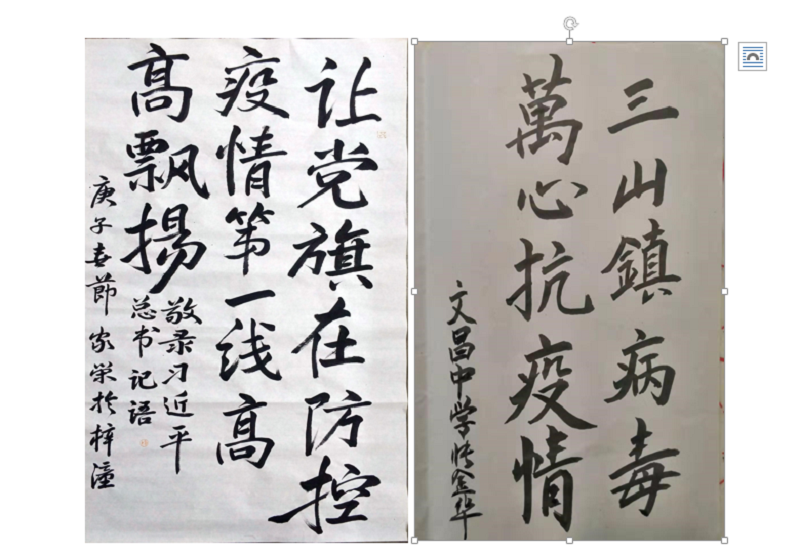 让党旗在防控
疫情第一线高
髙飘揚
敬录习近平
总书记语
庚子春節家荣於梓潼
三山鎮病毒
萬心抗疫情
文昌中学金华